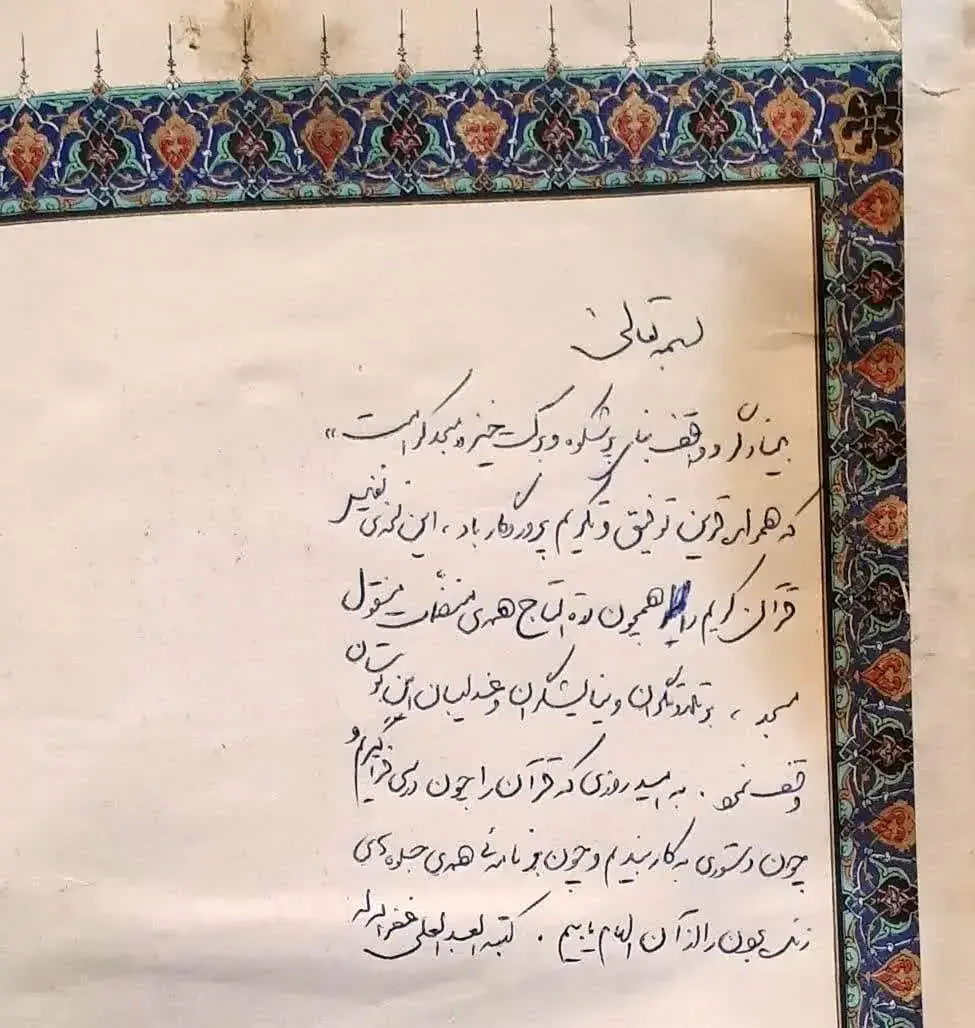 بسمه تعالی
بنیادگر و واقف بنای پرشکوه و برکت خیز «مسجد کرامت»
که همواره قرین توفیق و تکریم پروردگار باد، این دوره‌ی تفسیر
قرآن کریم را همچون درة التاج همه‌ی متصرفات منقول
مسجد، بر تلاوتگران و نیایشگران و عندلیبان این بوستان
وقف نمود. به امید روزی که قرآن را چون درسی فراگیریم و
چون دستوری به کار بندیم و چون برنامه‌ئی همه‌ی جلوه‌های
زندگیمون را از آن الهام یابیم. کتبه العبد العلی غفر الله له